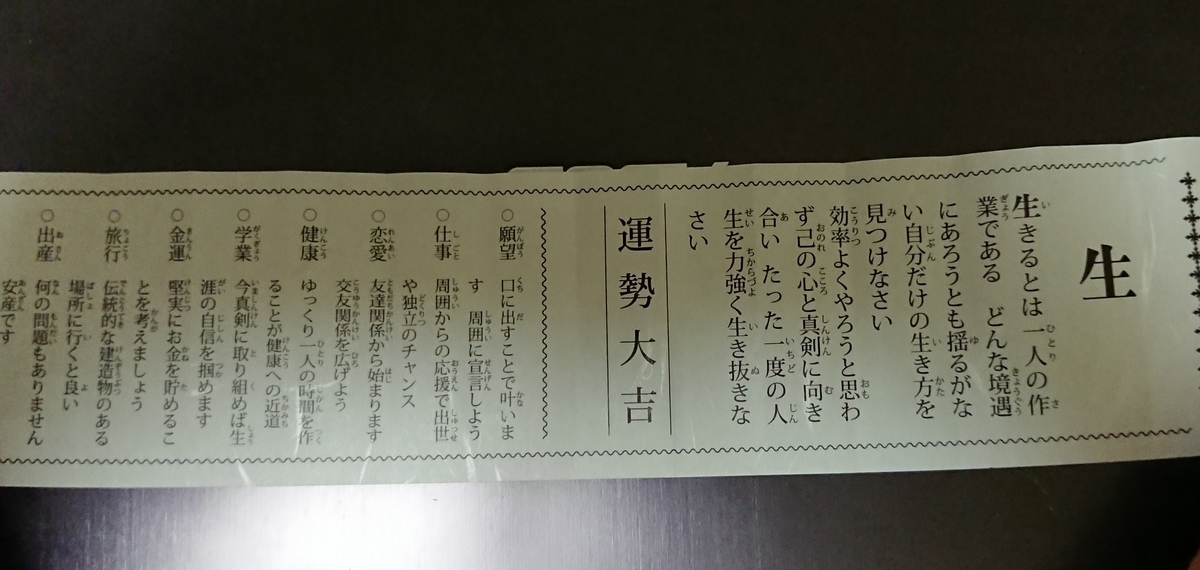 生
生きるとは一人の作
業である　どんな境遇
にあろうとも揺るがな
い自分だけの生き方を
見つけなさい
効率よくやろうと思わ
ず己の心と真剣に向き
合い　たった一度の人
生を力強く生き抜きな
さい
運勢大吉
○願望　口に出すことで叶いま
す　周囲に宣言しよう
○仕事　周囲からの応援で出世
や独立のチャンス
○恋愛　友達関係から始まります
交友関係を広げよう
○健康　ゆっくり一人の時間を作
ることが健康への近道
○学業　今真剣に取り組めば生
涯の自信を掴めます
○金運　堅実にお金を貯めるこ
とを考えましょう
○旅行　伝統的な建造物のある
場所に行くと良い
○出産　何の問題もありません
安産です